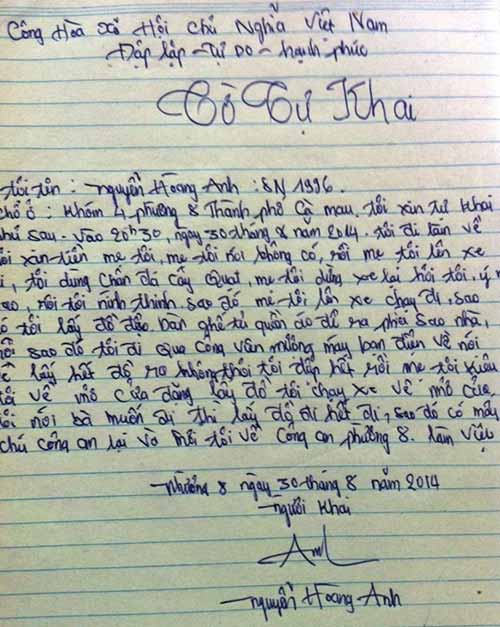 Công Hòa Xó Hội Chủ Nghĩa Việt Nam
Đập lập - Tự Do - hạnh phúc
Cờ Tự Khai
tôi tên : nguyễn Hoàng Anh : SN 1996.
chổ ở : Khóm 4 phường 8 Thành phố Cà mau. tôi xin tự khai
như sau. vào 20h30, ngày 30 tháng 8 năm 2014. tôi đi làn về
tôi xin tiền mẹ tôi, mẹ tôi nói không có, rồi mẹ tôi lên xe
đi, tôi dùng chân đá cây quạt, mẹ tôi dừng xe lại hỏi tôi. ý mầy
sao, rồi tôi ninh thinh, sao đó mẹ tôi lên xe chạy đi, sao
đó tôi lấy đồ đạo bàn ghế tủ quần áo để ra phía sao nhà,
rồi sao đó tôi đi qua công vân mường mấy bạn điện về nói
về lấy hết đồ ra không thôi tôi đập hết rồi mẹ tôi kiêu
tôi về mỏ cưa đăng lấy đồ tôi chạy xe về mỏ cửa
tôi nói bà muốn đi thì lấy đồ đi hết đi, sao đó có mấy
chú công an lại và mời tôi về công an phường 8. làm việc
Phường 8 ngày 30 tháng 8 năm 2014
người khai
Anh
nguyễn Hoàng Anh